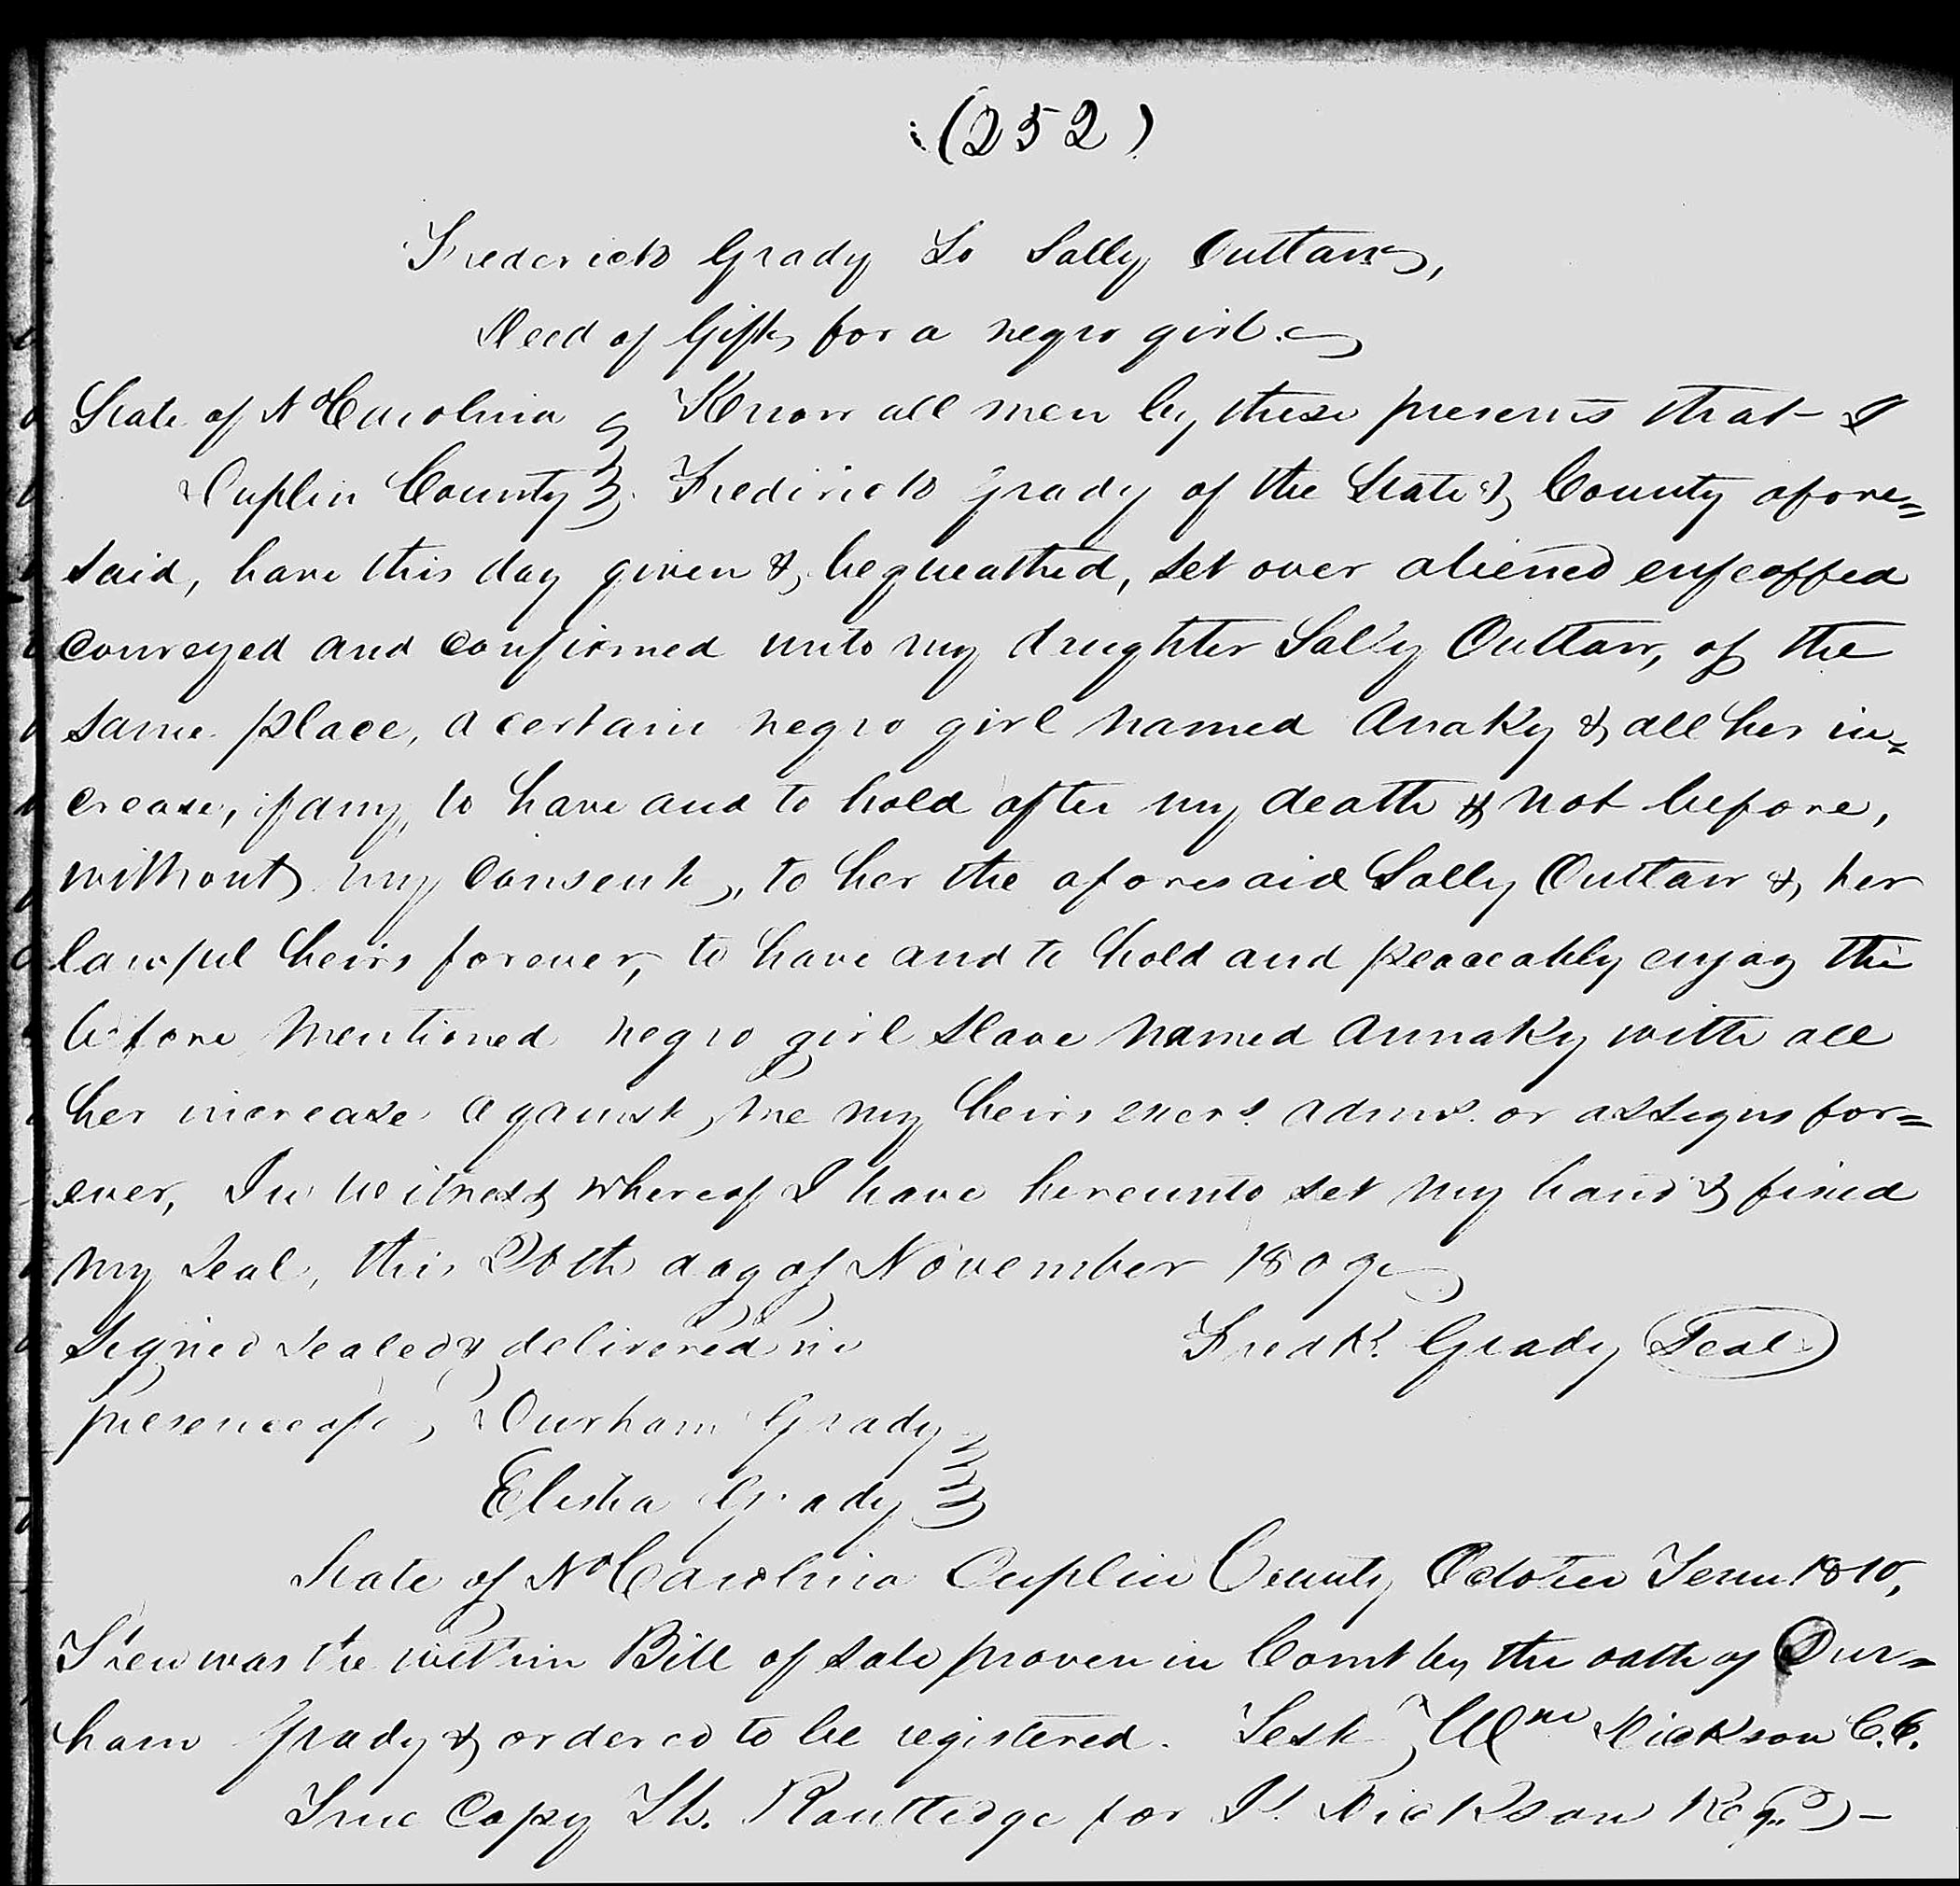 (252)
Frederick Grady To Sally Outlaw,
Deed of Gift, for a negro girl.
State of No Carolina } Know all men by these presents that I
Duplin County } Frederick Grady of the State & County afore=
said, have this day given & bequeathed, set over aliened enfeoffed
conveyed and confirmed unto my daughter Sally Outlaw, of the
same place, a certain negro girl named Anaky & all her in=
crease, if any, to have and to hold after my death & not before,
without my consent, to her the aforesaid Sally Outlaw & her
lawful heirs forever, to have and to hold and peaceably enjoy the
before mentioned negro girl slave named Annaky with all
her increase against me my heirs exers. adms. or assigns for=
ever, In witness whereof I have hereunto set my hand & fixed
my seal, this 20th day of November 1809
Signed sealed & delivered in Fredk. Grady Seal
presence of, Durham Grady }
Elisha Grady }
State of No Carolina Duplin County October Term 1810,
Then was the within Bill of sale proven in Court by the oath of Dur=
ham Grady & ordered to be registered. Test Wm Dickson C.C.
True Copy Th. Routledge for Dickson Regr.